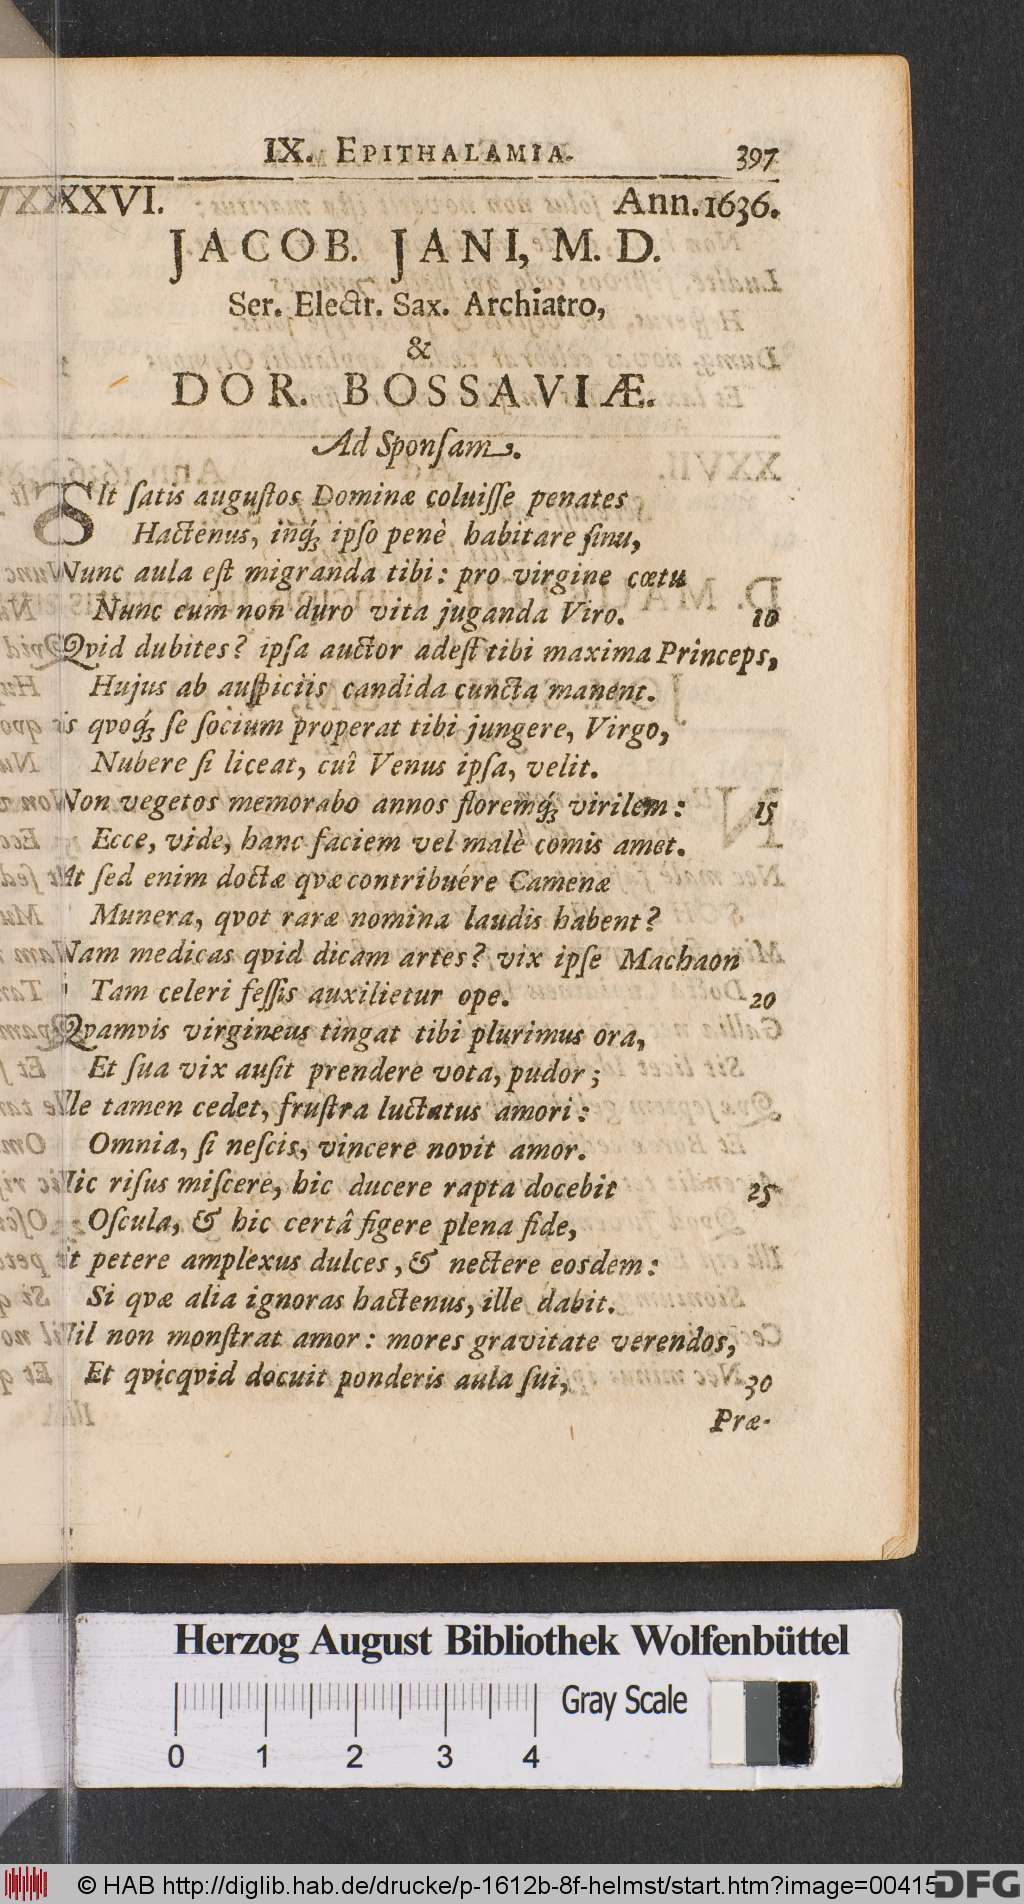 IX. EPITHALAMIA. 397
XXXVI. Ann. 1636.
JACOB. JANI, M. D.
Ser. Electr. Sax. Archiatro,
&
DOR. BOSSAVIÆ.
Ad Sponſam.
SIt ſatis auguſtos Dominæ coluiſſe penates
Hactenus, inq́; ipſo penè habitare ſinu,
Nunc aula eſt migranda tibi: pro virgine cœtu
Nunc cum non duro vita juganda Viro. 10
Qvid dubites? ipſa auctor adeſt tibi maxima Princeps,
Hujus ab auſpiciis candida cuncta manent.
is qvoq́; ſe ſocium properat tibi jungere, Virgo,
Nubere ſi liceat, cuî Venus ipſa, velit.
Non vegetos memorabo annos floremq́; virilem: 15
Ecce, vide, hanc faciem vel malè comis amet.
At ſed enim doctæ qvæ contribuére Camenæ
Munera, qvot raræ nomina laudis habent?
Nam medicas qvid dicam artes? vix ipſe Machaon
Tam celeri feſſis auxilietur ope. 20
Qvamvis virgineus tingat tibi plurimus ora,
Et ſua vix auſit prendere vota, pudor;
Ille tamen cedet, fruſtra luctatus amori:
Omnia, ſi neſcis, vincere novit amor.
Hic riſus miſcere, hic ducere rapta docebit 25
Oſcula, & hic certâ figere plena fide,
Et petere amplexus dulces, & nectere eosdem:
Si qvæ alia ignoras hactenus, ille dabit.
Nil non monſtrat amor: mores gravitate verendos,
Et qvicqvid docuit ponderis aula ſui, 30
Præ-
Herzog August Bibliothek Wolfenbüttel
Gray Scale
0 1 2 3 4
© HAB http://diglib.hab.de/drucke/p-1612b-8f-helmst/start.htm?image=00415
DFG